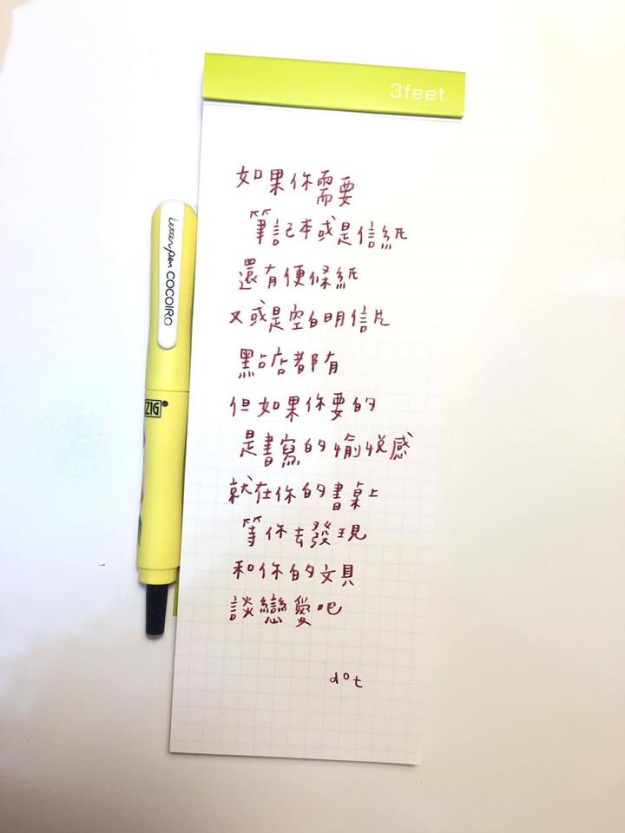 3feet
如果你需要
筆記本或是信紙
還有便條紙
又或是空白明信片
點點店都有
但如果你要的
是書寫的愉悅感
就在你的書桌上
等你去發現
和你的文具
談戀愛吧
dot
Letterpen COCOIRO
ZIG®